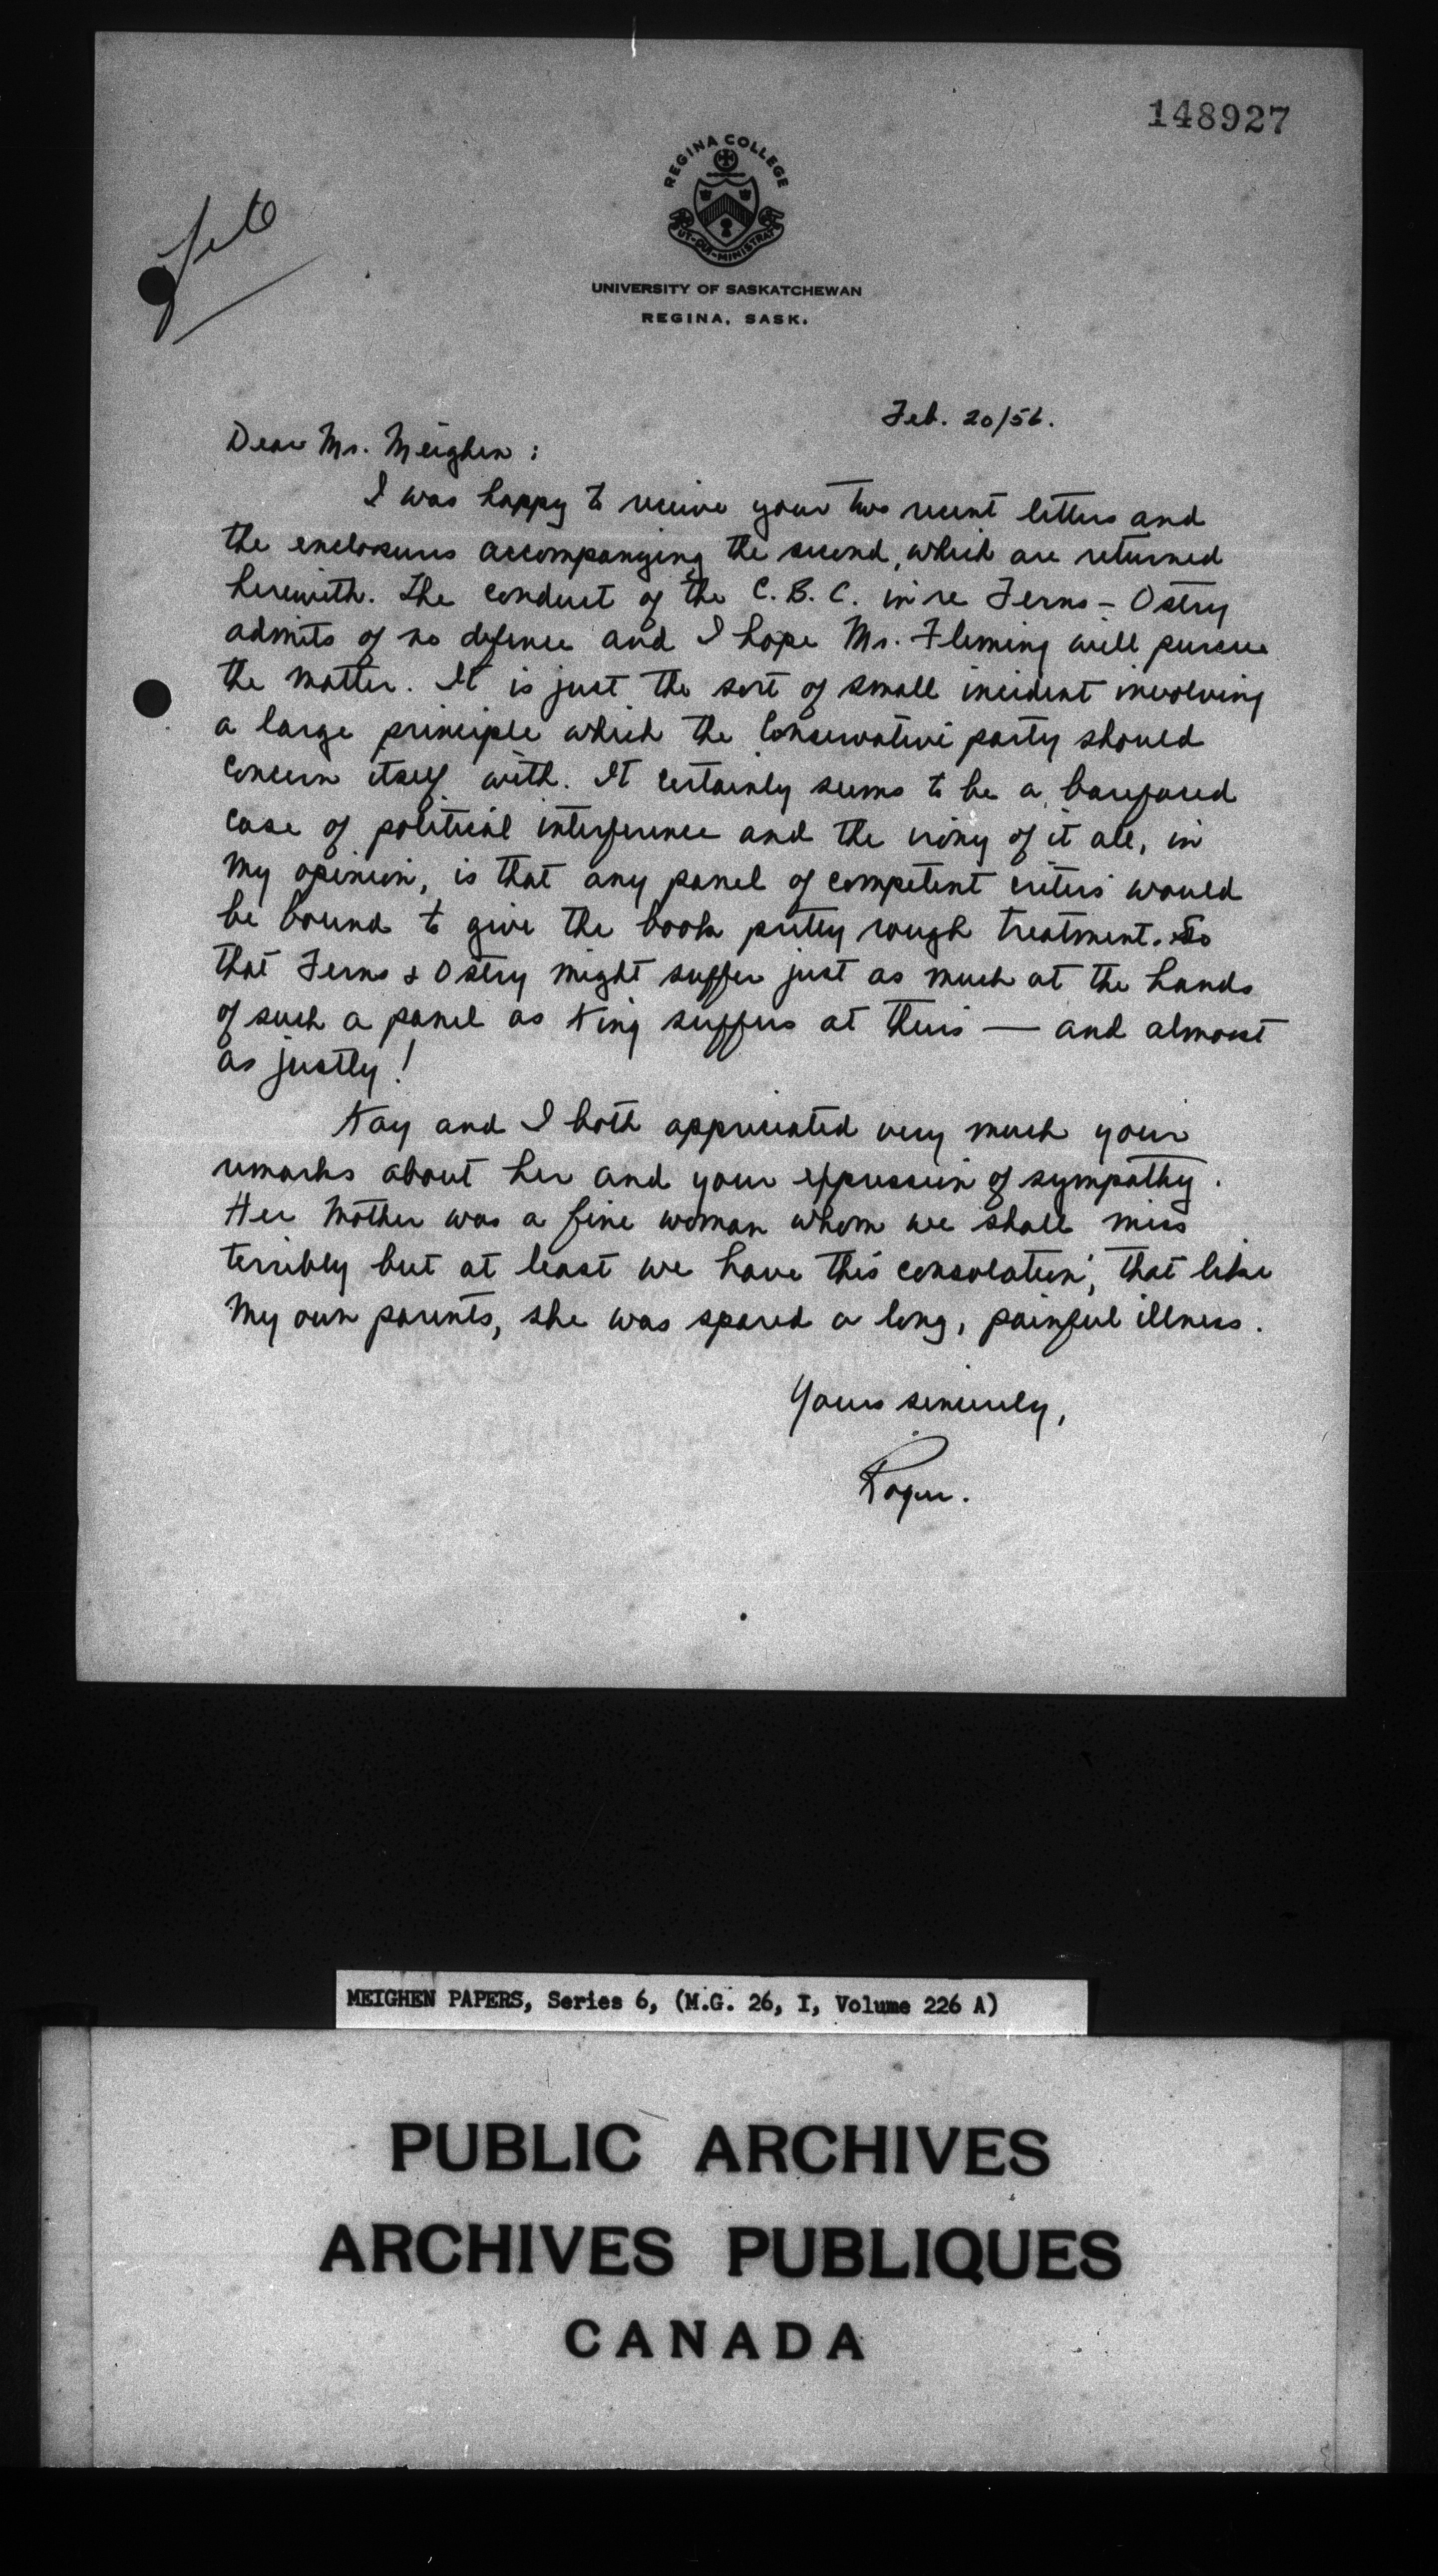 148927
REGINA COLLEGE
UT-QUI-MINISTRAT
UNIVERSITY OF SASKATCHEWAN
REGINA, SASK.
file
Feb. 20/56.
Dear Mr. Meighen :
I was happy to receive your two recent letters and
the enclosures accompanying the second, which are returned
herewith. The conduct of the C.B.C. in re Ferns - Ostry
admits of no defence and I hope Mr. Fleming will pursue
the matter. It is just the sort of small incident involving
a large principle which the Conservative party should
concern itself with. It certainly seems to be a barefaced
case of political interference and the irony of it all, in
my opinion, is that any panel of competent critics would
be bound to give the book pretty rough treatment. So
that Ferns & Ostry might suffer just as much at the hands
of such a panel as King suffers at theirs — and almost
as justly!
Kay and I both appreciated very much your
remarks about her and your expression of sympathy.
Her mother was a fine woman whom we shall miss
terribly but at least we have this consolation, that like
my own parents, she was spared a long, painful illness.
Yours sincerely,
Roger.
MEIGHEN PAPERS, Series 6, (M.G. 26, I, Volume 226 A)
PUBLIC ARCHIVES
ARCHIVES PUBLIQUES
CANADA